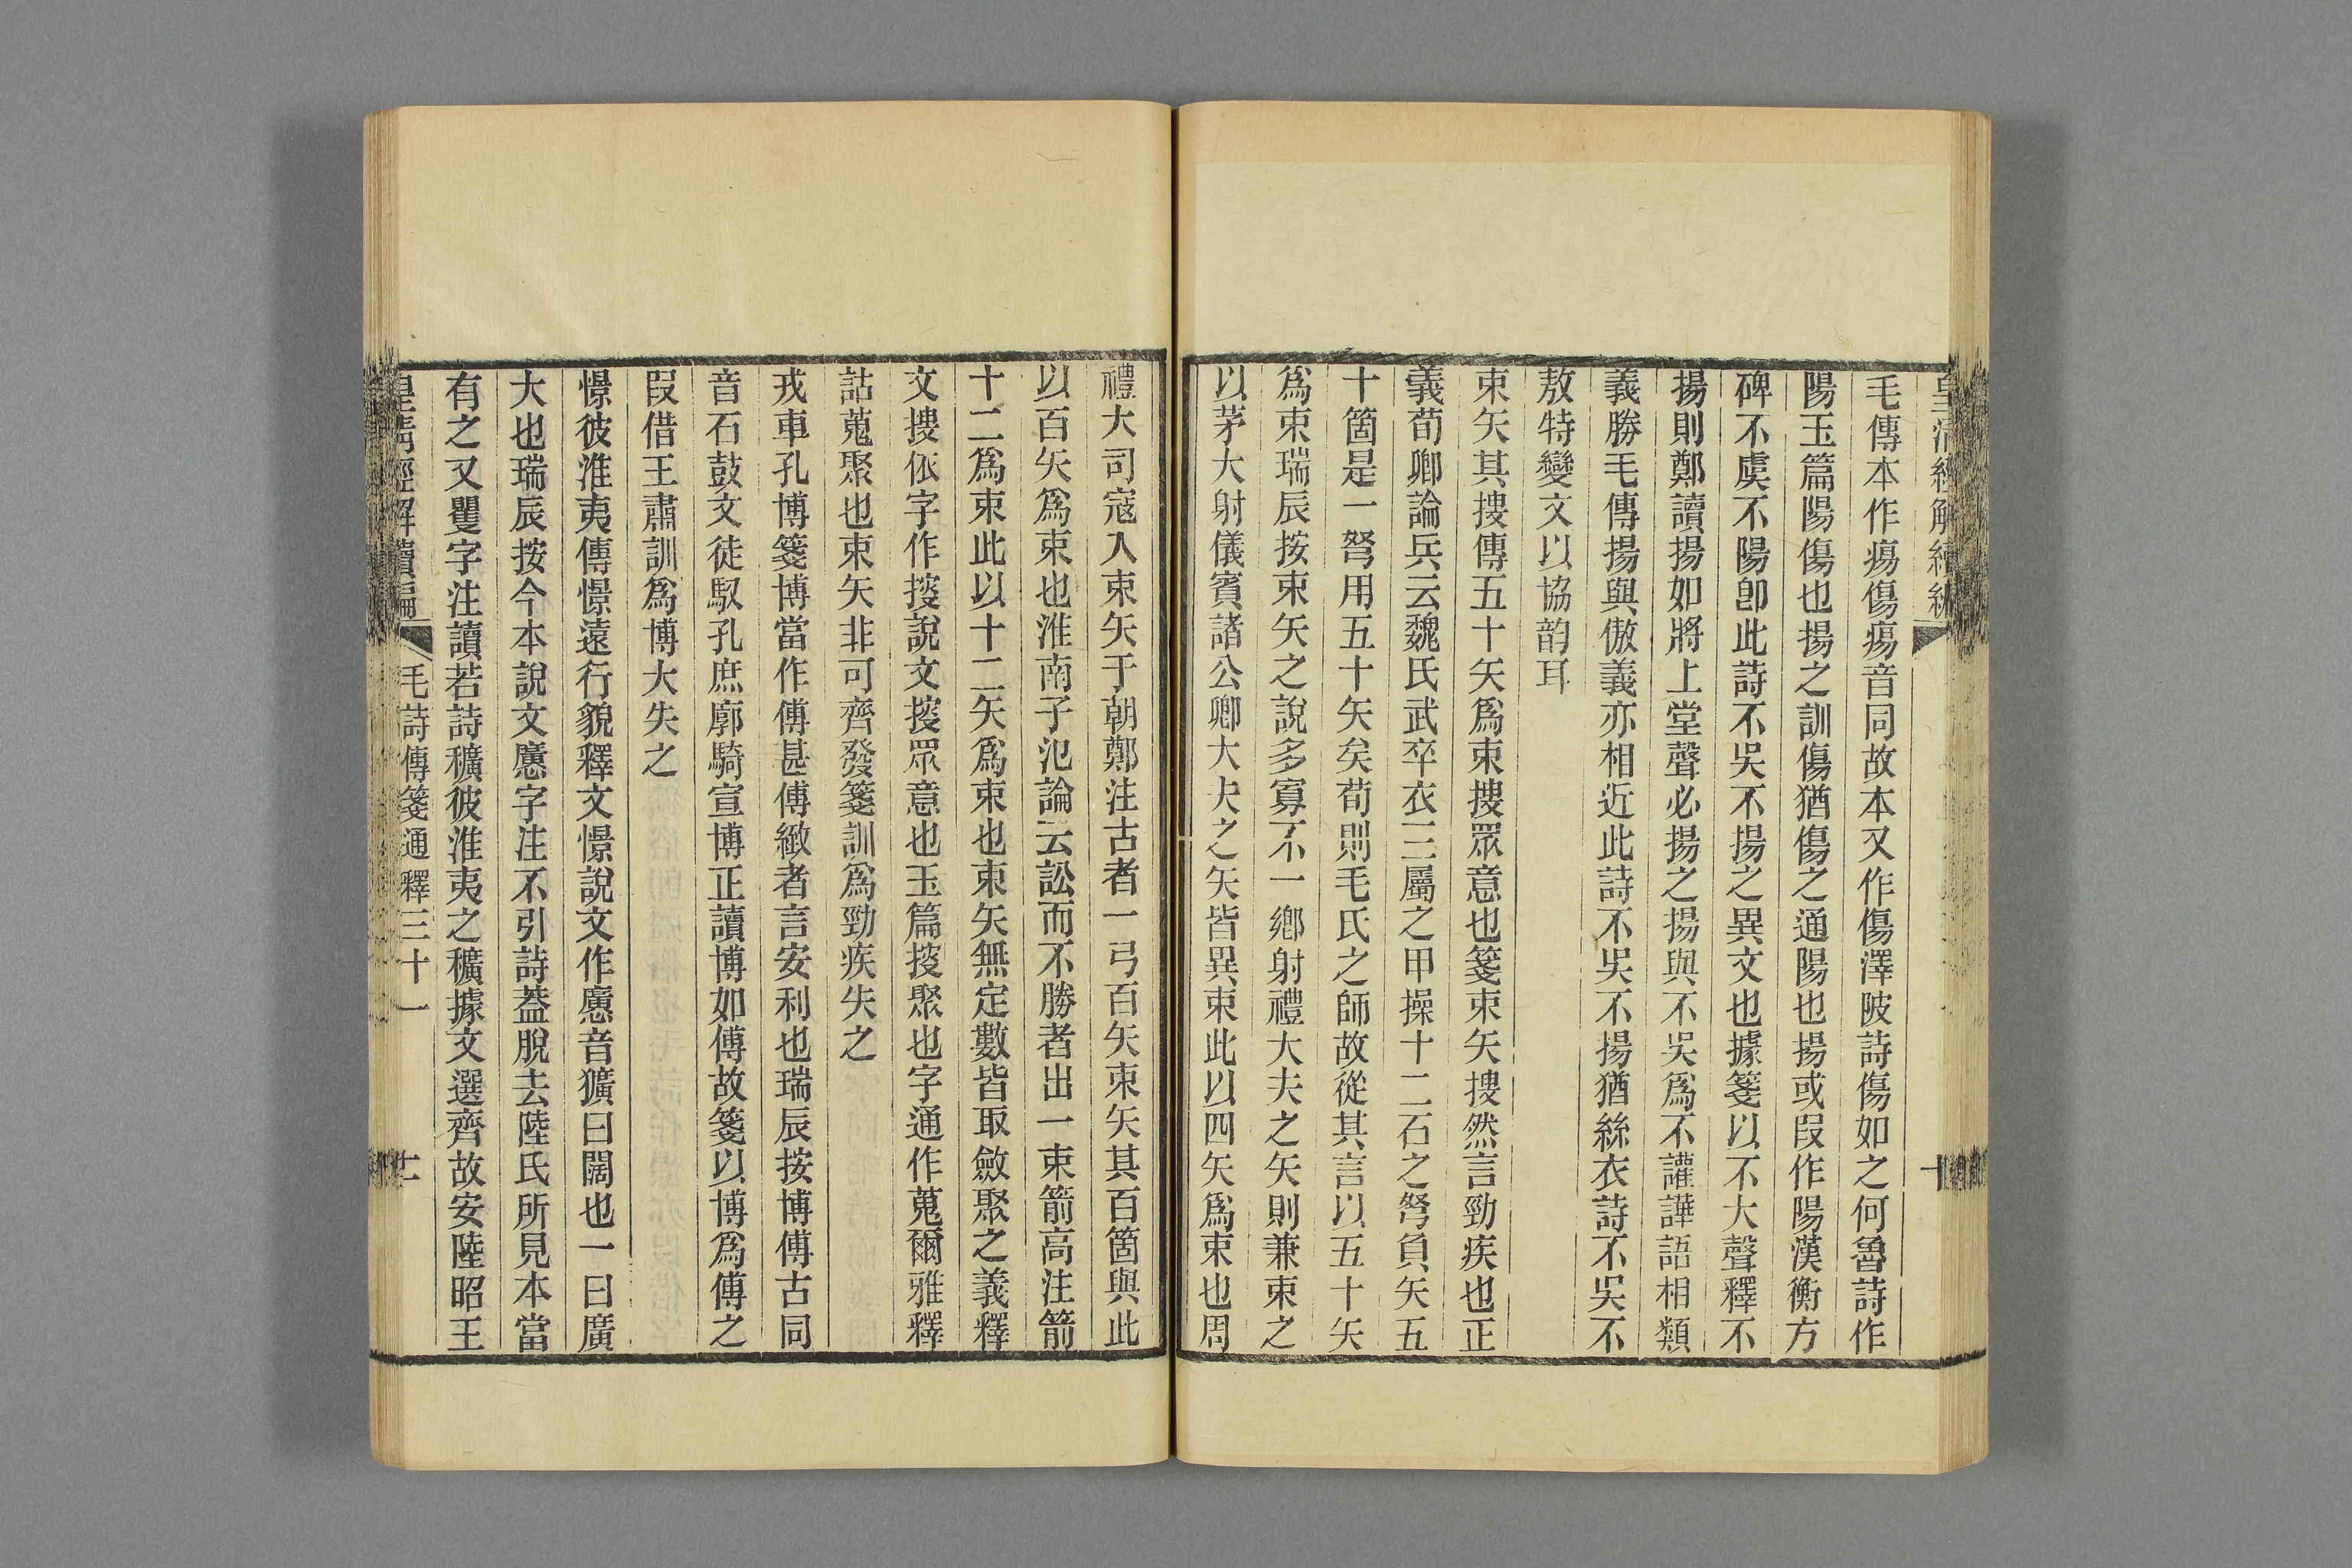 皇清經解續編
毛傳本作瘍傷瘍音同故本又作傷澤陂詩傷如之何魯詩作
陽玉篇陽傷也揚之訓傷猶傷之通陽也揚或叚作陽漢衡方
碑不虞不陽卽此詩不吳不揚之異文也據箋以不大聲釋不
揚則鄭讀揚如將上堂聲必揚之揚與不吳爲不讙譁語相類
義勝毛傳揚與傲義亦相近此詩不吳不揚猶絲衣詩不吳不
敖特變文以協韵耳
束矢其搜傳五十矢爲束搜眾意也箋束矢搜然言勁疾也正
義荀卿論兵云魏氏武卒衣三屬之甲操十二石之弩負矢五
十箇是一弩用五十矢矣荀則毛氏之師故從其言以五十矢
爲束瑞辰按束矢之說多寡不一鄉射禮大夫之矢則兼束之
以茅大射儀賓諸公卿大夫之矢皆異束此以四矢爲束也周
禮大司寇入束矢于朝鄭注古者一弓百矢束矢其百箇與此
以百矢爲束也淮南子氾論云訟而不勝者出一束箭高注箭
十二爲束此以十二矢爲束也束矢無定數皆取斂聚之義釋
文搜依字作㨃說文㨃眾意也玉篇㨃聚也字通作蒐爾雅釋
詁蒐聚也束矢非可齊發箋訓爲勁疾失之
戎車孔博箋博當作傅甚傅緻者言安利也瑞辰按博傅古同
音石鼓文徒馭孔庶廓騎宣博正讀博如傅故箋以博爲傅之
叚借王肅訓爲博大失之
憬彼淮夷傳憬遠行貌釋文憬說文作懬音獷曰闊也一曰廣
大也瑞辰按今本說文懬字注不引詩葢脫去陸氏所見本當
有之又矍字注讀若詩穬彼淮夷之穬據文選齊故安陸昭王
皇清經解續編
毛詩傳箋通釋三十一